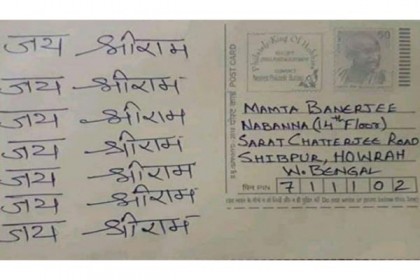 जय श्रीराम
जय श्रीराम
जय श्रीराम
जय श्रीराम
जय श्रीराम
जय श्रीराम
जय श्रीराम
POST CARD
50
MAMTA BANERJEE
NABANNA (14th Floor)
SARAT CHATTERJEE ROAD
SHIBPUR, HOWRAH
W. BENGAL
पिन PIN
711102